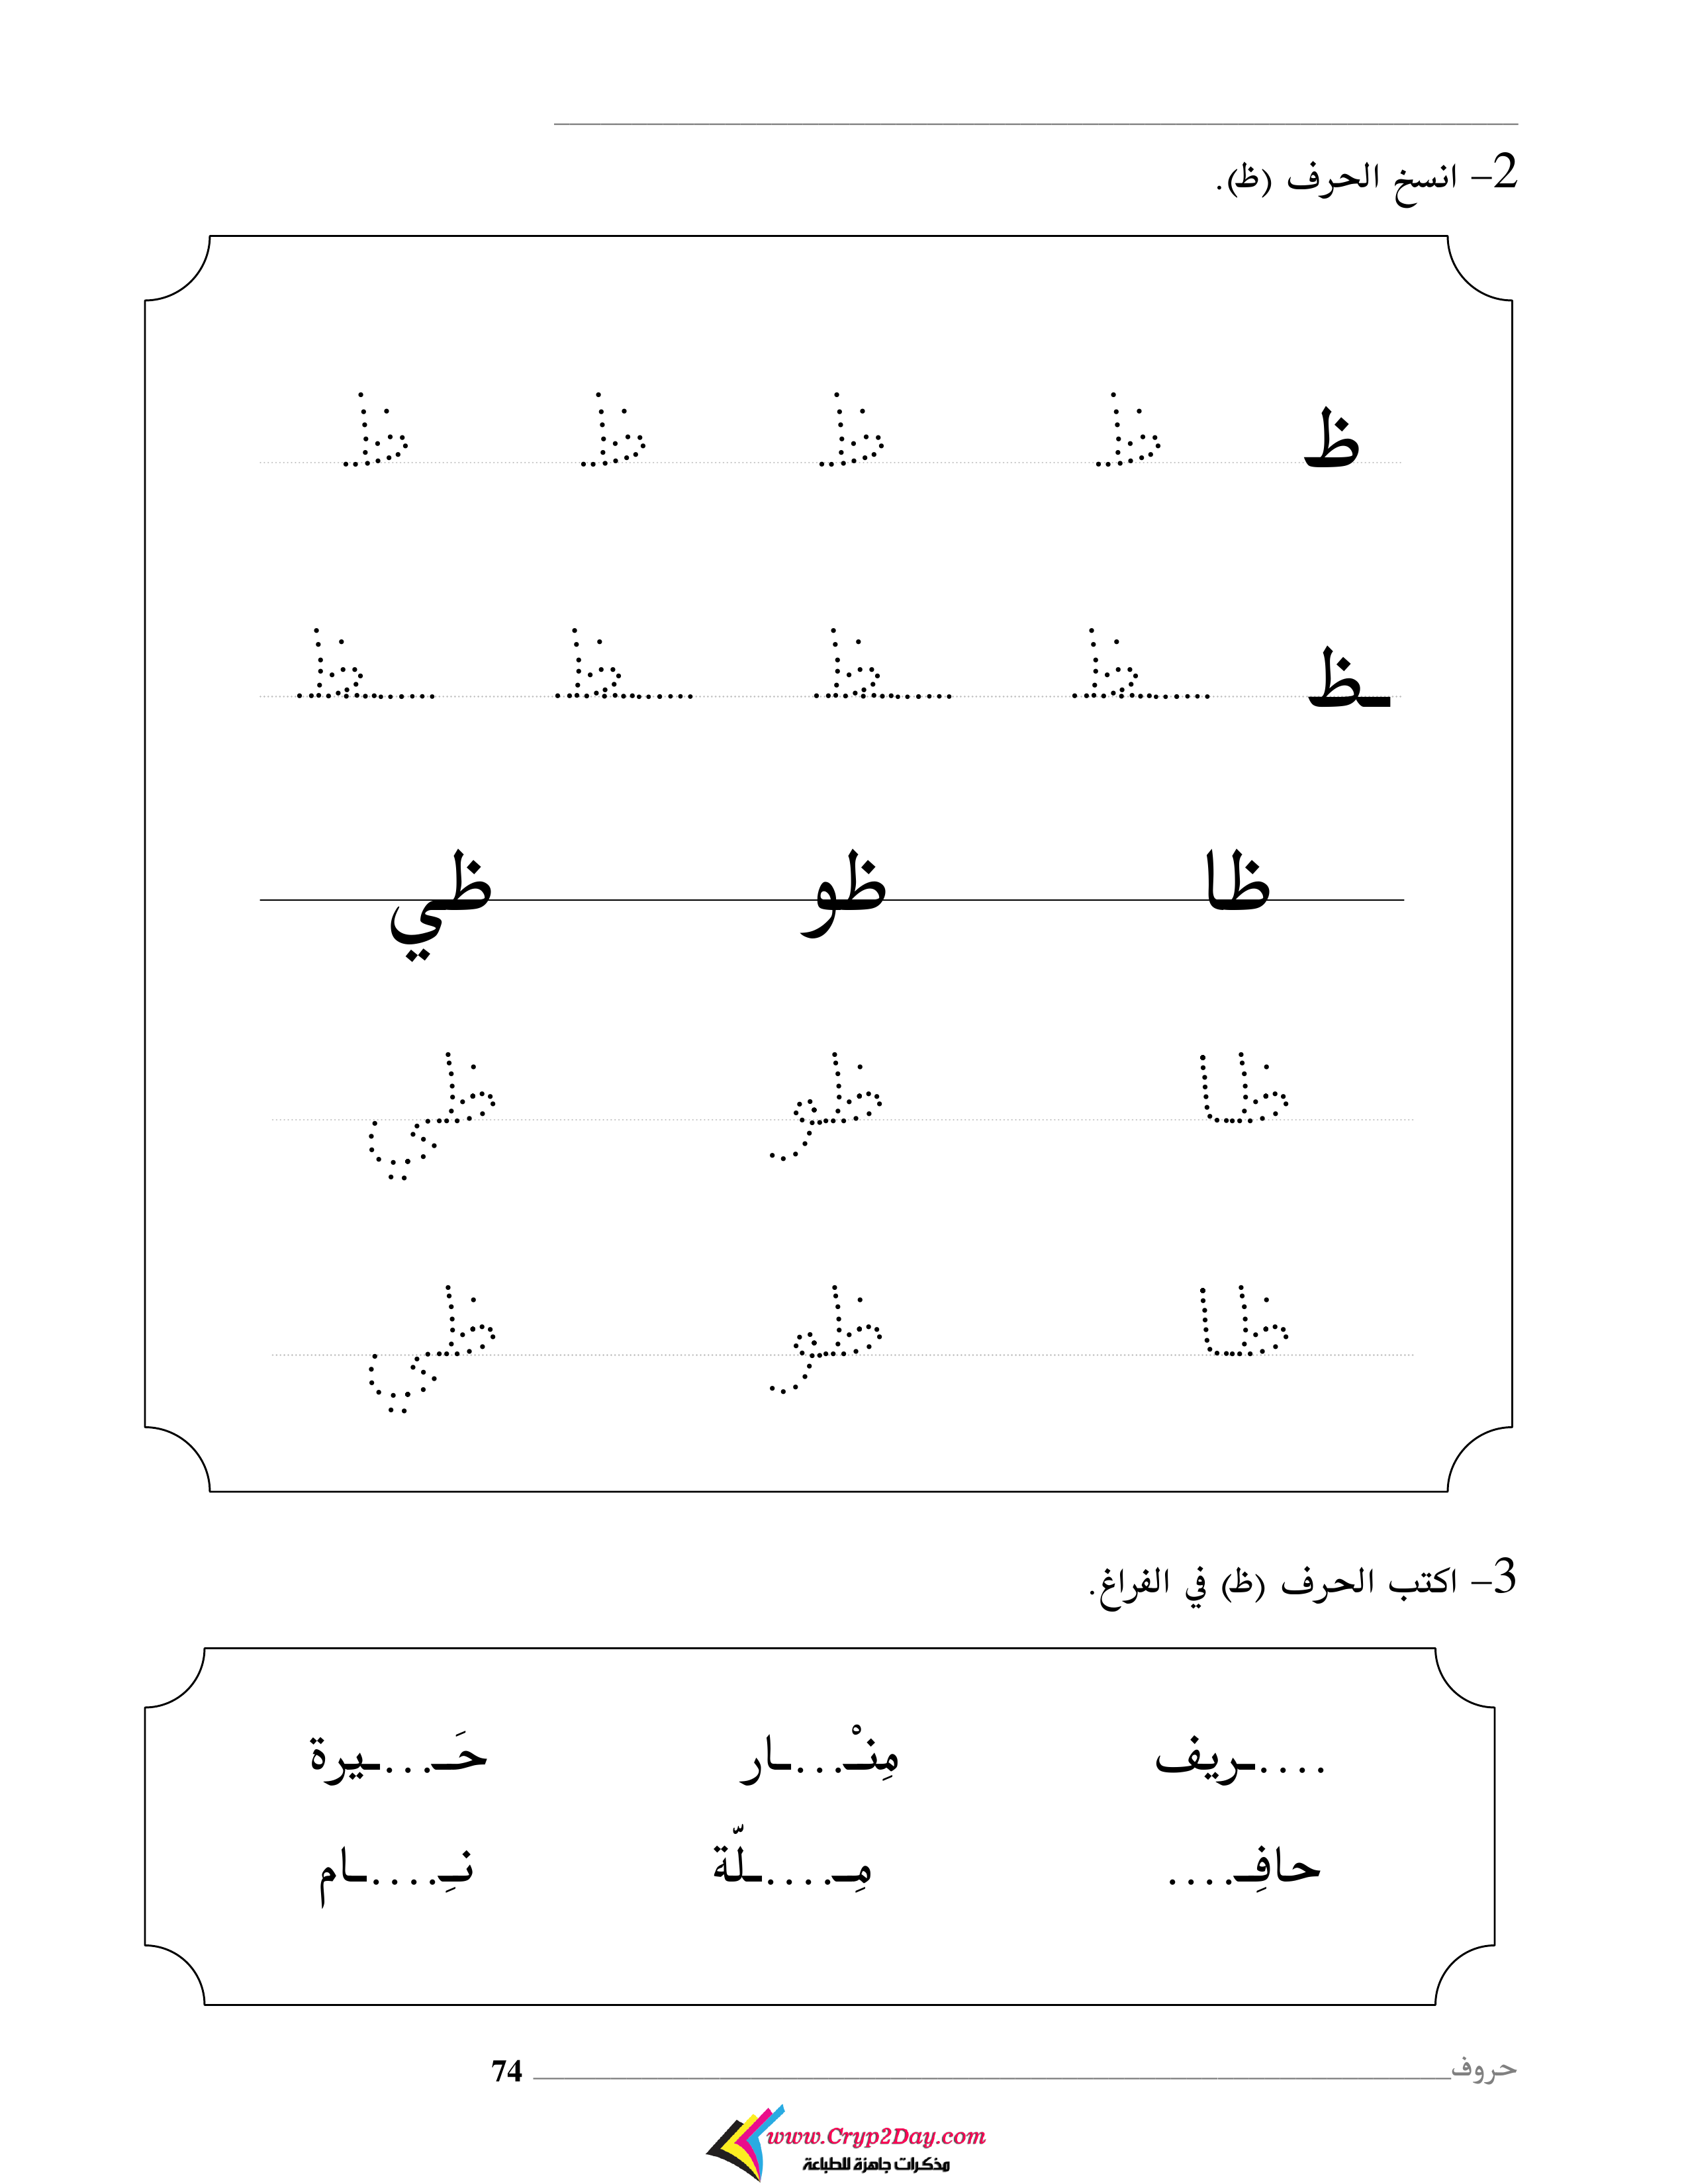 2- انسخ الحرف (ظ).
ظ ظ ظ ظ ظ
ـظ ـظ ـظ ـظ ـظ
ظا ظو ظي
ظا ظو ظي
ظا ظو ظي
3- اكتب الحرف (ظ) في الفراغ.
....ـريف مِنْـ...ـار حَـ...ـيرة
حافِـ.... مِـ....ـلّة نـِ....ـام
حروف 74
www.Cryp2Day.com
مذكرات جاهزة للطباعة